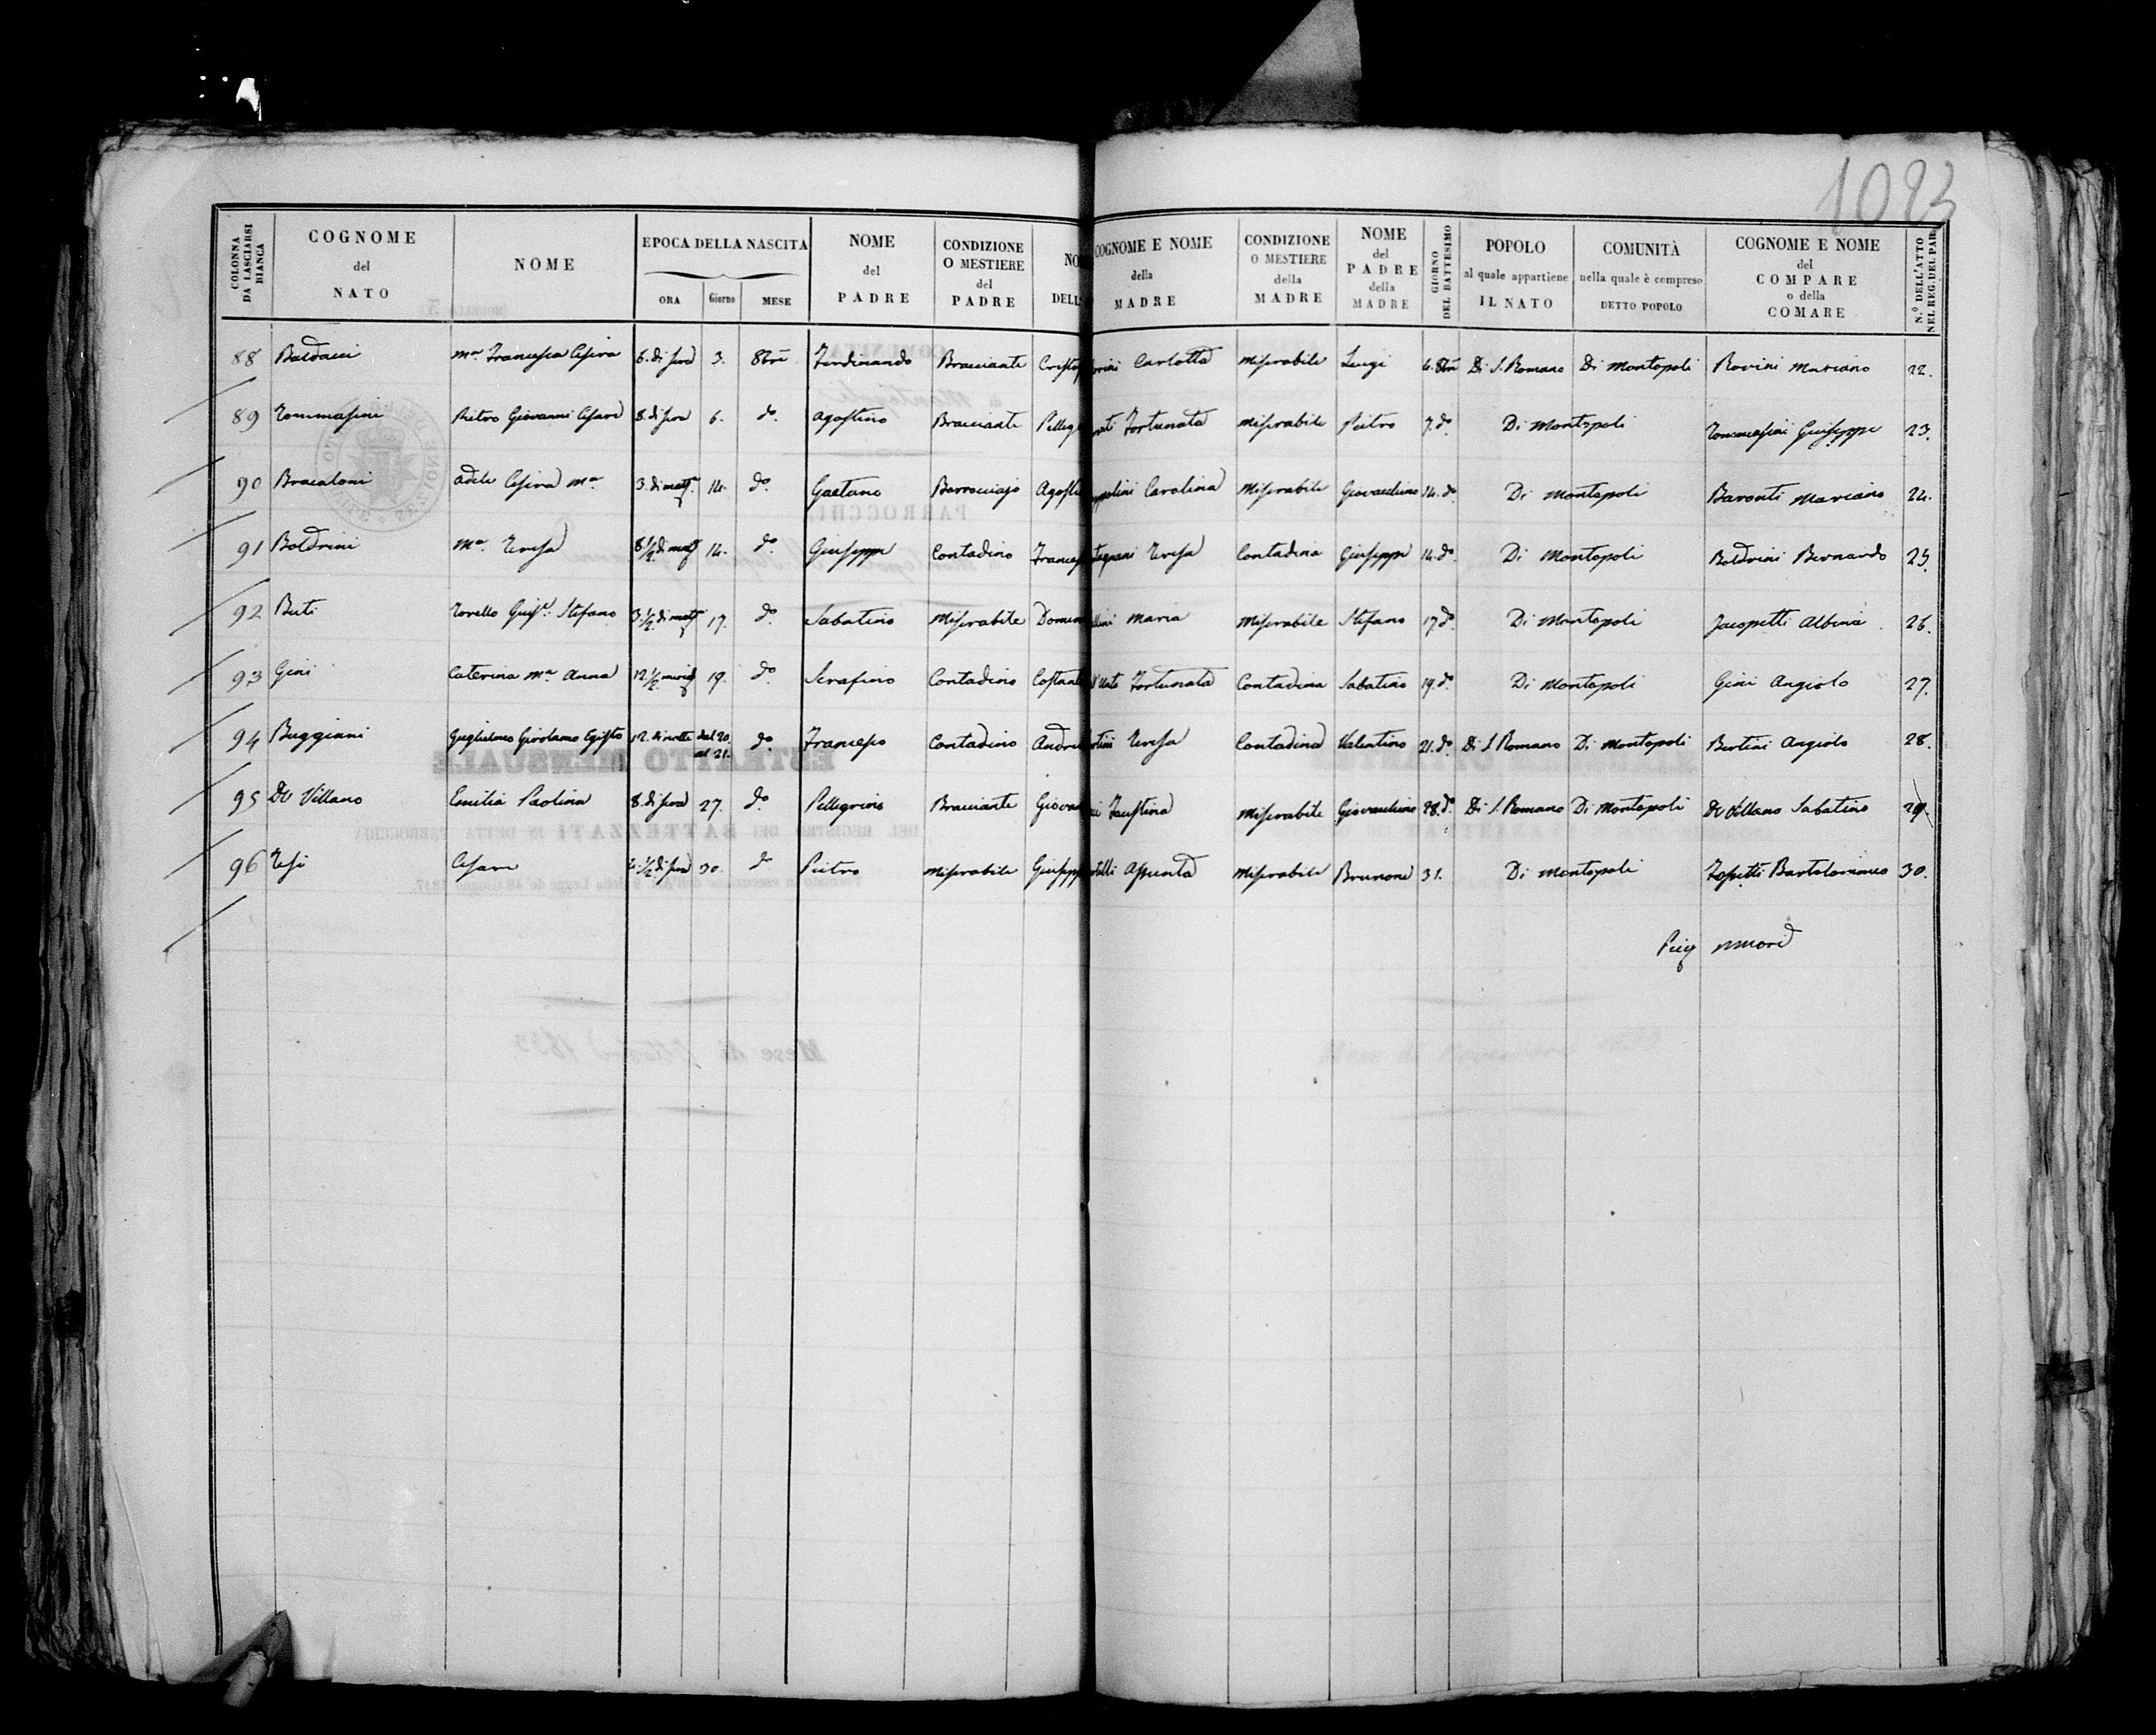 1023
COLONNA DA LASCIARSI BIANCA | COGNOME del NATO | NOME | EPOCA DELLA NASCITA ORA Giorno MESE | NOME del PADRE | CONDIZIONE O MESTIERE del PADRE | NO DELL | COGNOME E NOME della MADRE | CONDIZIONE O MESTIERE della MADRE | NOME del PADRE della MADRE | GIORNO DEL BATTESIMO | POPOLO al quale appartiene IL NATO | COMUNITÀ nella quale è compreso DETTO POPOLO | COGNOME E NOME del COMPARE o della COMARE | N.º DELL'ATTO NEL REG. DEL PAR.
88 Baldacci Mª Francesca Cesira 6. di sera 3. 8bre Ferdinando Bracciante Cristof rini Carlotta Miserabile Luigi 4. 8bre Di S. Romano Di Montopoli Rovini Mariano 22.
89 Tommasini Pietro Giovanni Cesare 8. di sera 6. do. Agostino Bracciante Pelleg rati Fortunata Miserabile Pietro 7. do Di Montopoli Tommasini Giuseppe 23.
90 Bracaloni Adele Cesira Mª 3. di matt. 14. do. Gaetano Barrocciajo Agost ppolini Carolina Miserabile Giovacchino 14. do Di Montopoli Baronti Mariano 24.
91 Boldrini Mª. Teresa 8 1/2 di matt 14. do. Giuseppe Contadino Frances tagnani Teresa Contadina Giuseppe 14. do Di Montopoli Boldrini Bernardo 25.
92 Buti Torello Giuse. Stefano 3. 1/2 di matt 17. do. Sabatino Miserabile Domen llini Maria Miserabile Stefano 17 do Di Montopoli Jacopetti Albina 26.
93 Gini Caterina Mª Anna 12. 1/2 merid 19. do. Serafino Contadino Costant Fortunata Contadina Sabatino 19. do Di Montopoli Gini Angiolo 27.
94 Buggiani Guglielmo Girolamo Egisto 12. di notte dal 20. al 21. do. Francesco Contadino Andre tini Teresa Contadina Valentino 21. do Di S. Romano Di Montopoli Bertini Angiolo 28.
95 Del Villano Emilia Paolina 8. di sera 27. do. Pellegrino Bracciante Giova ni Faustina Miserabile Giovacchino 28. do Di S. Romano Di Montopoli Del Villano Sabatino 29.
96 Tesi Cesare 1/2 di sera 30. do Pietro Miserabile Giusepp telli Assunta Miserabile Brunone 31. Di Montopoli Bartolommeo 30.